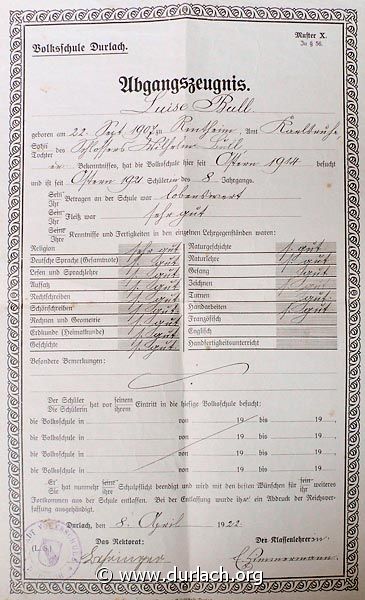 Volksschule Durlach.
Muster X.
Zu § 56.
Abgangszeugnis.
Luise Bull
geboren am 22. Sept. 1907 zu Rintheim, Amt Karlsruhe,
Sohn
Tochter des Schlossers Wilhelm Bull
Bekenntnisses, hat die Volksschule hier seit Ostern 1914 besucht
und ist seit Ostern 1921 Schülerin des 8. Jahrgangs.
Sein
Ihr Betragen an der Schule war lobenswert
Sein
Ihr Fleiß war sehr gut
Seine
Ihre Kenntnisse und Fertigkeiten in den einzelnen Lehrgegenständen waren:
Religion sehr gut Naturgeschichte s. gut
Deutsche Sprache (Gesamtnote) s. gut Naturlehre s. gut
Lesen und Sprachlehre s. gut Gesang gut
Aufsatz s. gut Zeichnen s. gut
Rechtschreiben s. gut Turnen gut
Schönschreiben s. gut Handarbeiten s. gut
Rechnen und Geometrie s. gut Französisch
Erdkunde (Heimatkunde) s. gut Englisch
Geschichte s. gut Handfertigkeitsunterricht
Besondere Bemerkungen:
Der Schüler
Die Schülerin hat vor seinem
ihrem Eintritt in die hiesige Volksschule besucht:
die Volksschule in von 19 bis 19
die Volksschule in von 19 bis 19
die Volksschule in von 19 bis 19
die Volksschule in von 19 bis 19
Er
Sie hat nunmehr seine
ihre Schulpflicht beendigt und wird mit den besten Wünschen für sein
ihr weiteres
Fortkommen aus der Schule entlassen. Bei der Entlassung wurde ihm
ihr ein Abdruck der Reichsverfassung ausgehändigt.
Durlach, den 8. April 1922
Das Rektorat: Den Klassenlehrer:
(L. S.) Zimmermann.
© www.durlach.org